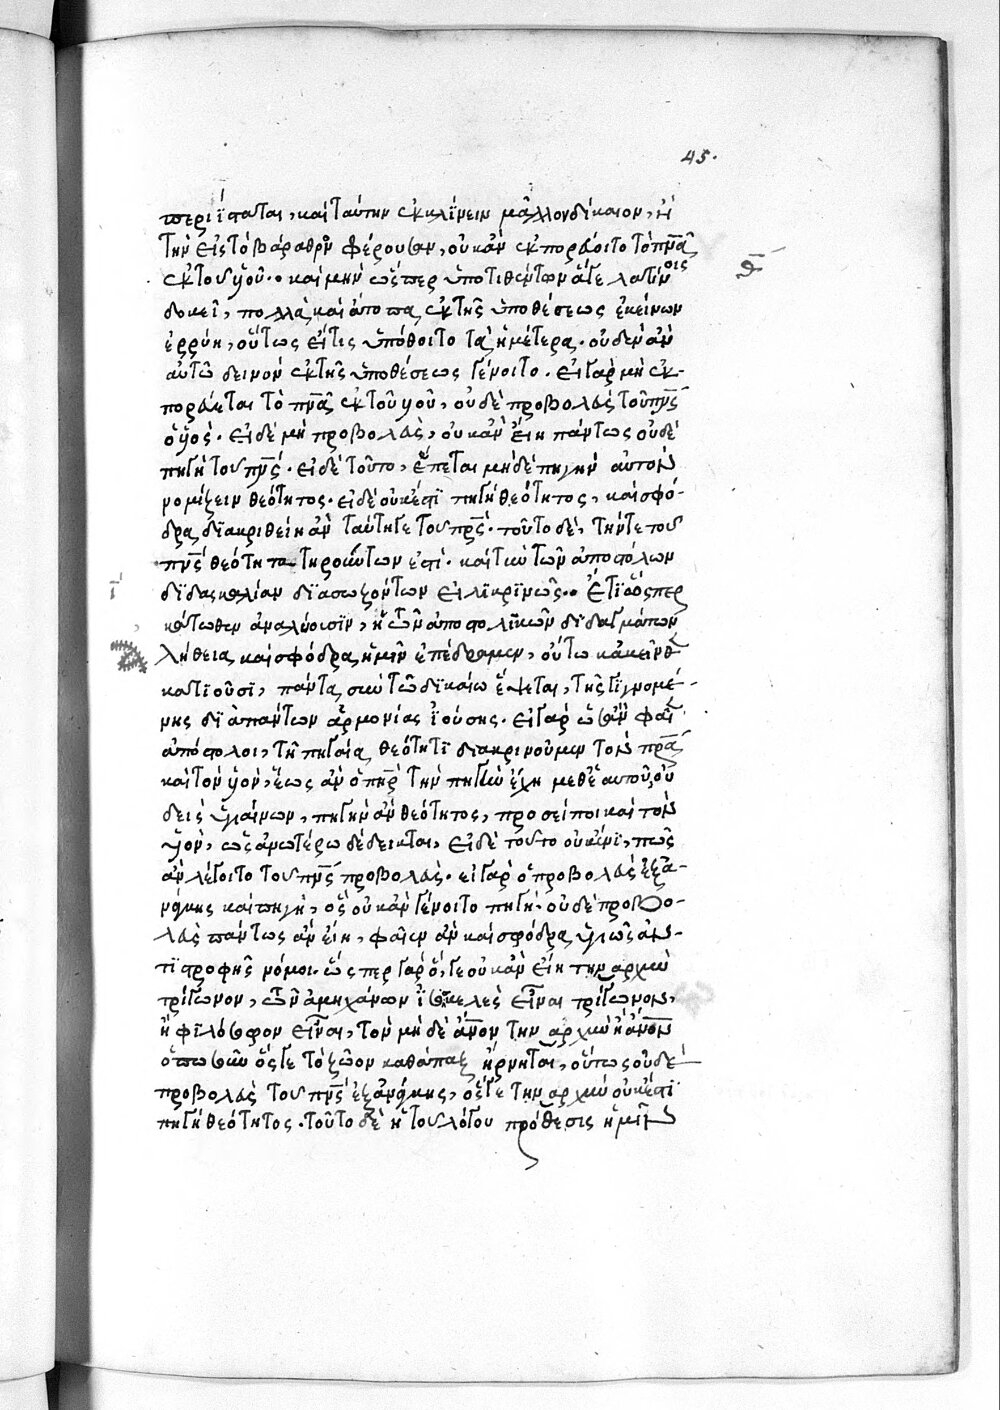 45.
περιΐσταται, καὶ ταύτην ἐκκλίνειν μᾶλλον δίκαιον, ἢ
τὴν εἰς τὸ βάραθρον φέρουσαν, οὐκ ἂν ἐκπορεύοιτο τὸ πν̅α̅
ἐκ τοῦ υἱοῦ·. καὶ μὴν ὥσπερ ὑποτιθέντων ἅγε λατίνοις
θ̅
δοκεῖ, πολλὰ καὶ ἄτοπα ἐκ τῆς ὑποθέσεως ἐκείνων
ἐρρύη, οὕτως εἴτις ὑπόθοιτο τὰ ἡμέτερα. οὐδὲν ἂν
αὐτῶ δεινὸν ἐκ τῆς ὑποθέσεως γένοιτο. εἰ γὰρ μὴ ἐκ-
πορεύεται τὸ πν̅α̅ ἐκ τοῦ υἱοῦ, οὐδὲ προβολεὺς τοῦ πν̅ς̅
ὁ υἱός. εἰ δὲ μὴ προβολεὺς, οὐκ ἂν εἴη πάντως οὐδὲ
πηγὴ τοῦ πν̅ς̅. εἰ δὲ τοῦτο, ἕπεται μηδὲ πηγὴν αὐτὸν
νομίζειν θεότητος. εἰ δὲ οὐκ ἔστι πηγὴ θεότητος, καὶ σφό-
δρα διακριθείη ἂν ταύτηγε τοῦ πρ̅ς̅. τοῦτο δὲ, τήντε τοῦ
πν̅ς̅ θεότητα τηρούντων ἐστί. καὶ τὴν τῶν ἀποστόλων
ϊ̅
διδασκαλίαν διασωζόντων εἰλικρινῶς·. Ἔτι ὥσπερ
κάτωθεν ἀναλύουσιν, ἡ τῶν ἀποστολικῶν διδαγμάτων
λήθεια καὶ σφόδρα ἡμῖν ἐπέδραμεν, οὕτω κἀκεῖνθεν
κατιοῦσι, πάντα σὺν τῶ δικαίω ἕψεται, τῆς γινομέ-
νης δι' ἁπάντων ἁρμονίας ἰούσης. εἰ γὰρ ὥς φασιν
ἀπόστολοι, τῆ πηγαία θεότητι διακρινοῦμεν τὸν πρ̅α̅
καὶ τὸν υἱὸν, ἕως ἂν ὁ πη̅ρ̅ τὴν πηγὴν ἔχη μεθ' ἑαυτοῦ, οὐ
δεὶς ὑγιαίνων, πηγὴν ἂν θεότητος, προσείποι καὶ τὸν
υἱὸν, ὡς ἀνωτέρω δέδεικται, εἰ δὲ τοῦτο οὐκ ἔνι, πῶς
ἂν λέγοιτο τοῦ πν̅ς̅ προβολεὺς. εἰ γὰρ ὁ προβολεὺς ἐξα-
νάγκης καὶ πηγὴ, ὃς οὐκ ἂν γένοιτο πηγὴ. οὐδὲ προβο-
λεὺς πάντως ἂν εἴη, φαῖεν ἂν καὶ σφόδρα ὑγιῶς ἀν-
τιστροφῆς νόμοι. ὥσπερ γὰρ ὅ, γε οὐκ ἂν εἴη τὴν ἀρχὴν
τρίγωνον, τῶν ἀμηχάνων ἰσοσκελὲς εἶναι τρίγωνον,
ἢ φιλόσοφον εἶναι, τὸν μηδὲ ἄν̅ον τὴν ἀρχὴν
ὅστις γε τὸ ζῶον καθάπαξ ἤρνηται, οὕτως οὐδὲ
προβολεὺς τοῦ πν̅ς̅ ἐξανάγκης, ὅς γε τὴν ἀρχὴν οὐκ ἔστι
πηγὴ θεότητος. τοῦτο δὲ ἡ τοῦ λόγου πρόθεσις ἡμῖν